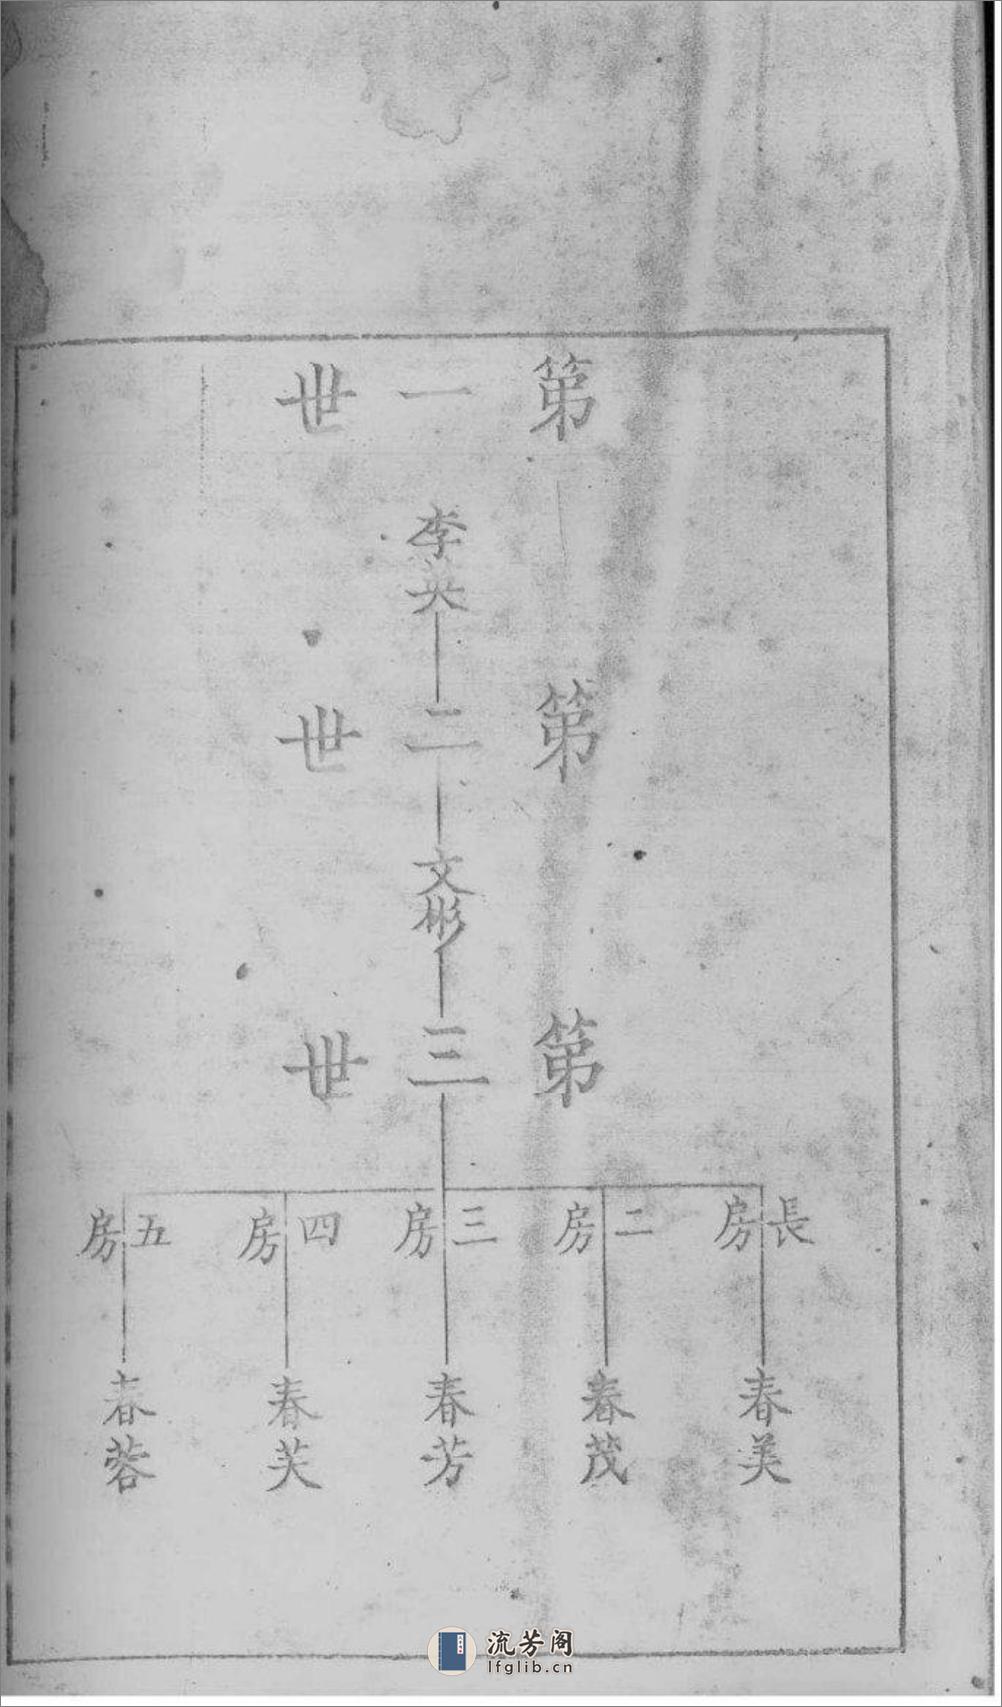 第一世
李英
第二世
文彬
第三世
長房
二房
三房
四房
五房
春美
春茂
春芳
春芙
春蓉
流芳阁
lfglib.cn